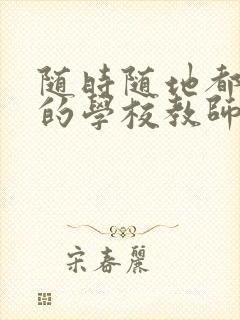 随時随地都
的學校教師
宋春麗